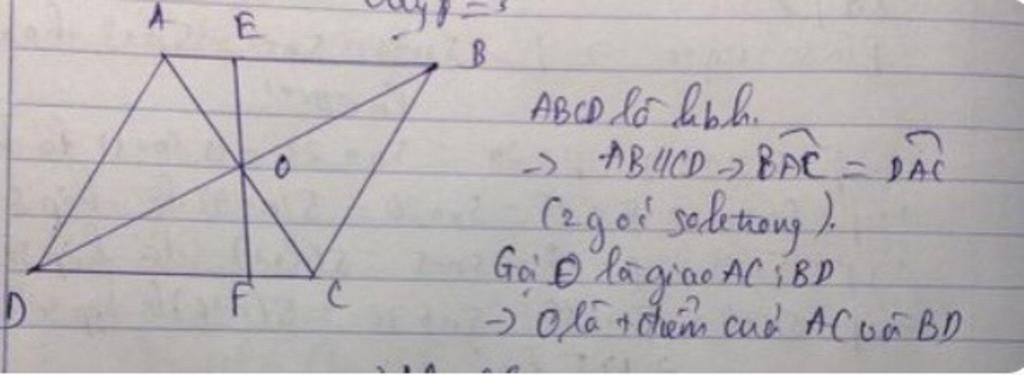 A E
B
ABCD là hbh.
O
→ AB//CD → BAC = DAC
(2 góc soletrong).
Gọi O là giao AC; BD
D F C
→ O là t điểm của AC và BD